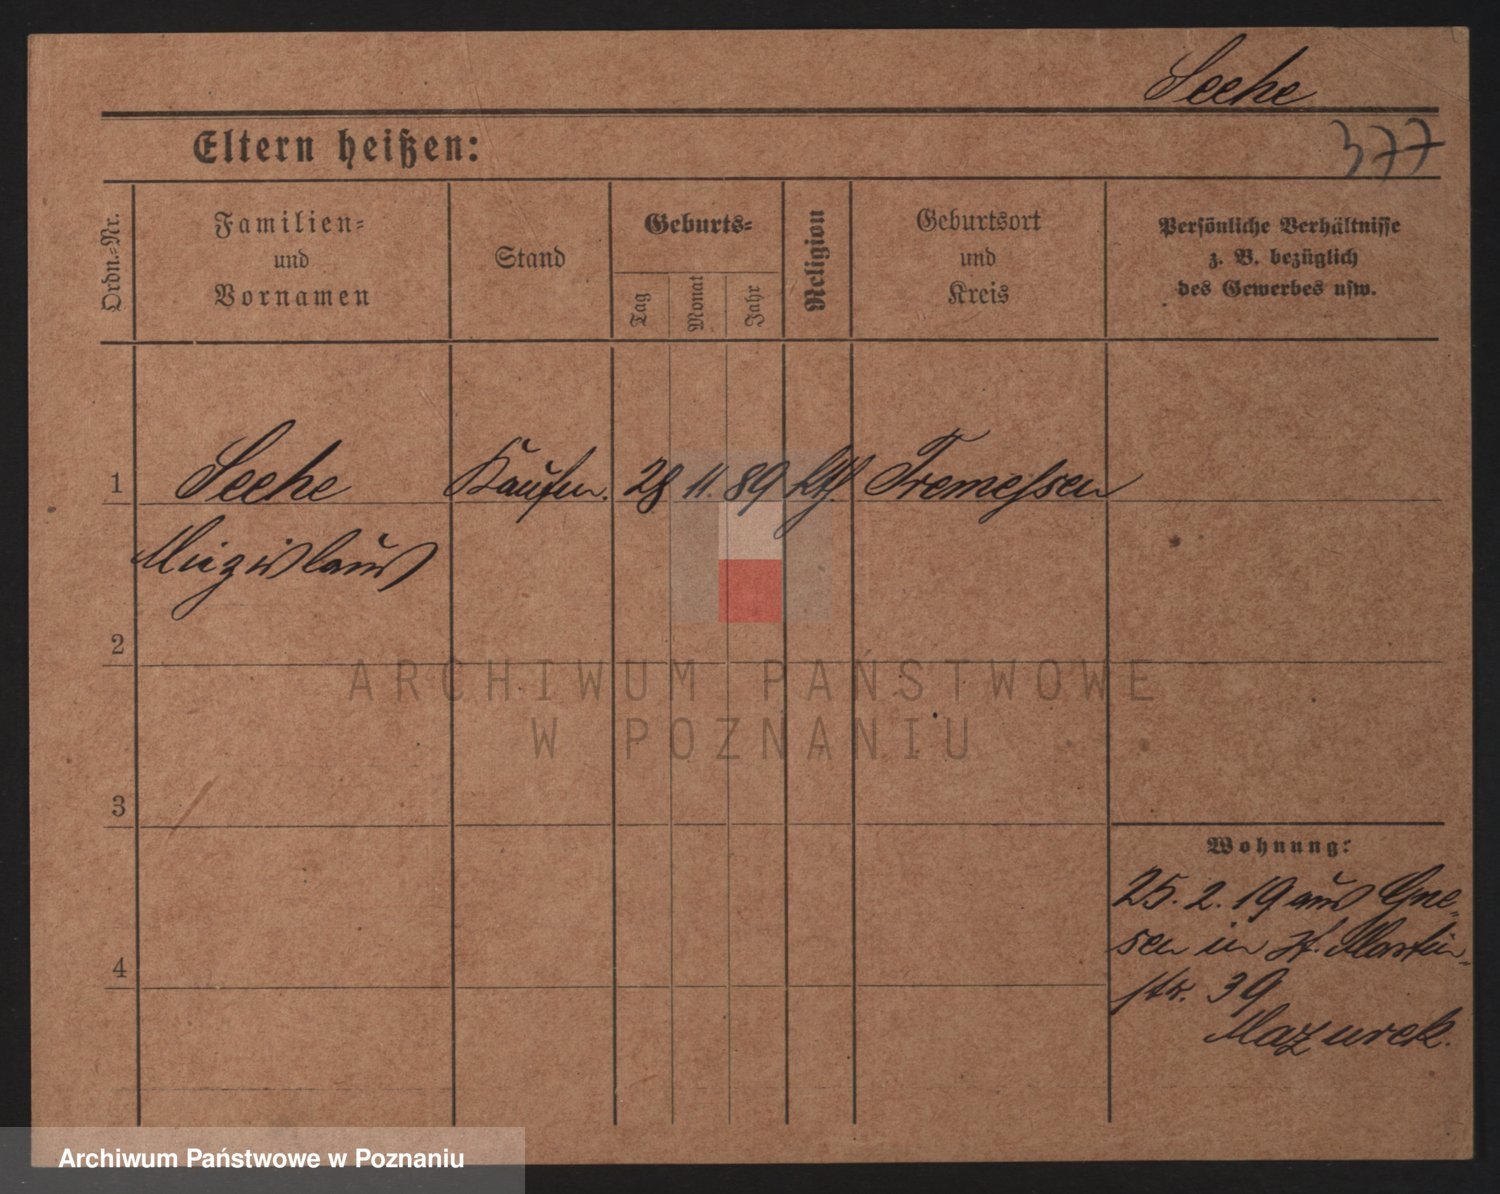 Seehe
377
Eltern heißen:
Ordn.-Nr.
Familien-
und
Vornamen
Stand
Geburts-
Tag
Monat
Jahr
Religion
Geburtsort
und
Kreis
Persönliche Verhältnisse
z. B. bezüglich
des Gewerbes usw.
1 Seehe Kaufm. 28 11. 89 kth Tremessen
Miezislaus
2
3
4
ARCHIWUM PAŃSTWOWE
W POZNANIU
Wohnung:
25. 2. 19 aus Gne-
sen in St. Martin-
str. 39
Mazurek.
Archiwum Państwowe w Poznaniu